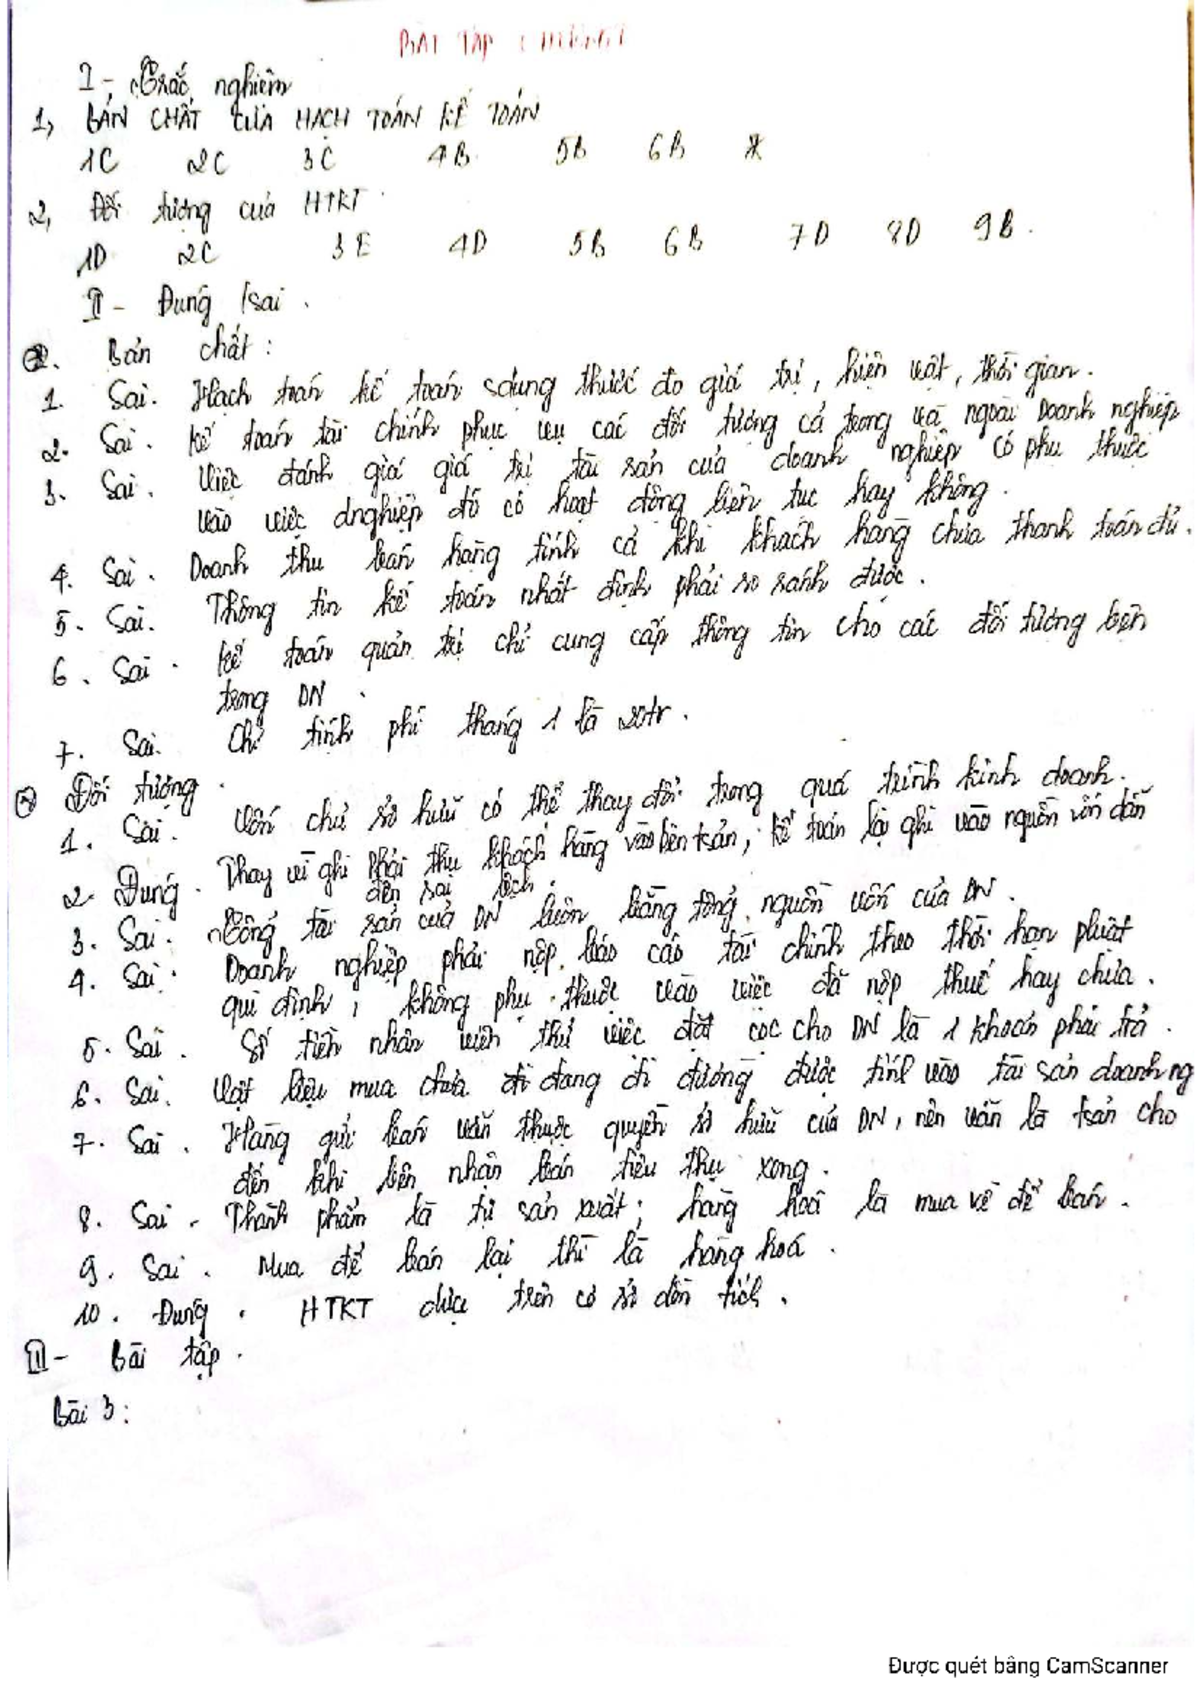 BÀI TẬP CHƯƠNG 1
I - Trắc nghiệm
1, BẢN CHẤT CỦA HẠCH TOÁN KẾ TOÁN
1C 2C 3C 4B 5B 6B
2, Đối tượng của HTKT.
1D 2C 3E 4D 5B 6B 7D 8D 9B.
II - Đúng /sai.
1. Bản chất:
1. Sai. Hạch toán kế toán sdụng thước đo giá trị, hiện vật, thời gian.
2. Sai. Kế toán tài chính phục vụ các đối tượng cả trong và ngoài Doanh nghiệp
3. Sai. Việc đánh giá giá trị tài sản của doanh nghiệp có phụ thuộc
vào việc dnghiệp đó có hoạt động liên tục hay không.
4. Sai. Doanh thu bán hàng tính cả khi khách hàng chưa thanh toán đủ.
5. Sai. Thông tin kế toán nhất định phải so sánh được.
6. Sai. Kế toán quản trị chỉ cung cấp thông tin cho các đối tượng bên
trong DN.
7. Sai. Chỉ tính phí tháng 1 là 20tr.
2 Đối tượng.
1. Sai. Vốn chủ sở hữu có thể thay đổi trong quá trình kinh doanh.
2. Đúng. Thay vì ghi phải thu khách hàng vào bên tsản, kế toán lại ghi vào nguồn vốn dẫn
đến sai lệch.
3. Sai. Tổng tài sản của DN luôn bằng tổng nguồn vốn của DN.
4. Sai. Doanh nghiệp phải nộp báo cáo tài chính theo thời hạn pluật
qui định, không phụ thuộc vào việc đã nộp thuế hay chưa.
5. Sai. Số tiền nhân viên thử việc đặt cọc cho DN là 1 khoản phải trả.
6. Sai. Vật liệu mua chưa đi đang đi đường được tính vào tài sản doanh ng
7. Sai. Hàng gửi bán vẫn thuộc quyền sở hữu của DN, nên vẫn là tsản cho
đến khi bên nhận bán tiêu thụ xong.
8. Sai. Thành phẩm là tự sản xuất; hàng hoá là mua về để bán.
9. Sai. Mua để bán lại thì là hàng hoá.
10. Đúng. HTKT dựa trên cơ sở dồn tích.
III - Bài tập.
Bài 3:
Được quét bằng CamScanner